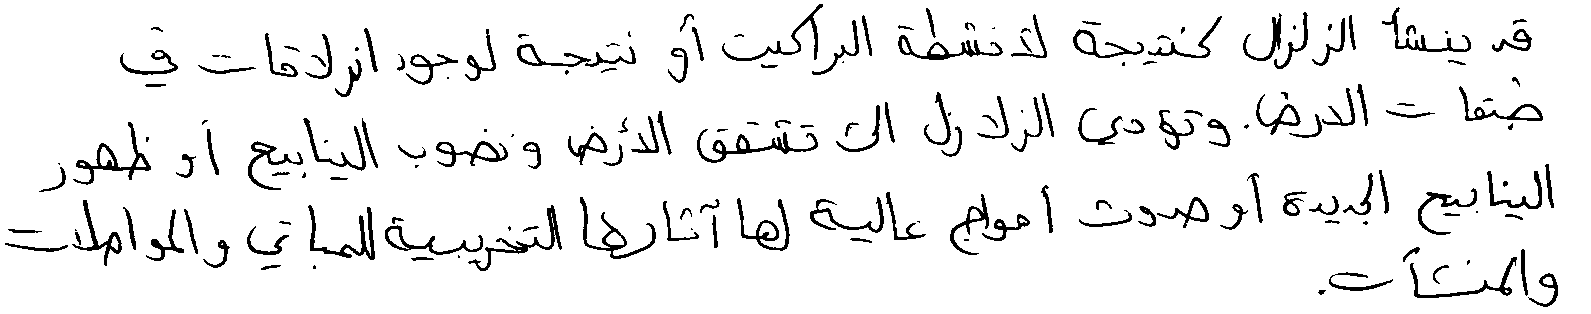 قد ينشأ الزلزال كنتيجة لأنشطة البراكين أو نتيجة لوجود انزلاقات في
طبقات الارض. وتؤدي الزلازل الى تشقق الأرض ونضوب الينابيع أو ظهور
الينابيع الجديدة أو حدوث أمواج عالية لها آثارها التخريبية للمباني والمواصلات
والمنشآت.